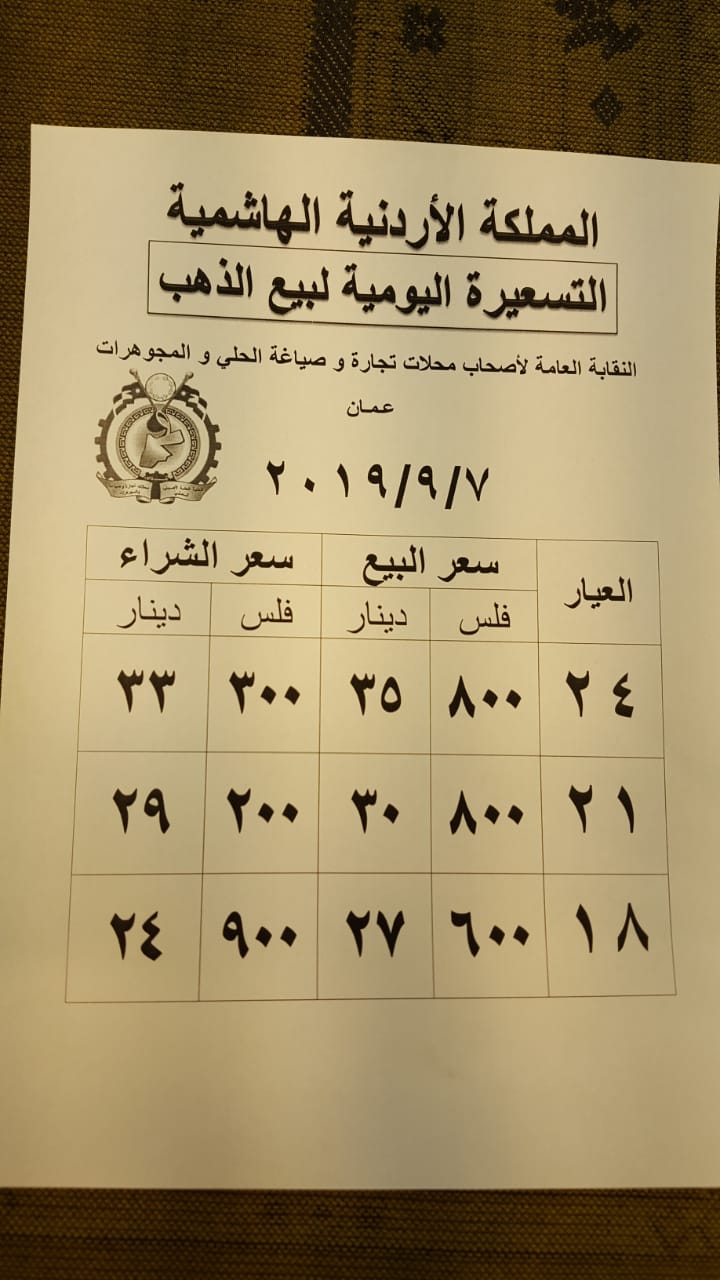 المملكة الأردنية الهاشمية
التسعيرة اليومية لبيع الذهب
النقابة العامة لأصحاب محلات تجارة و صياغة الحلي و المجوهرات
عمان
٢٠١٩/٩/٧
العيار سعر البيع سعر الشراء
فلس دينار فلس دينار
٢٤ ٨٠٠ ٣٥ ٣٠٠ ٣٣
٢١ ٨٠٠ ٣٠ ٢٠٠ ٢٩
١٨ ٦٠٠ ٢٧ ٩٠٠ ٢٤